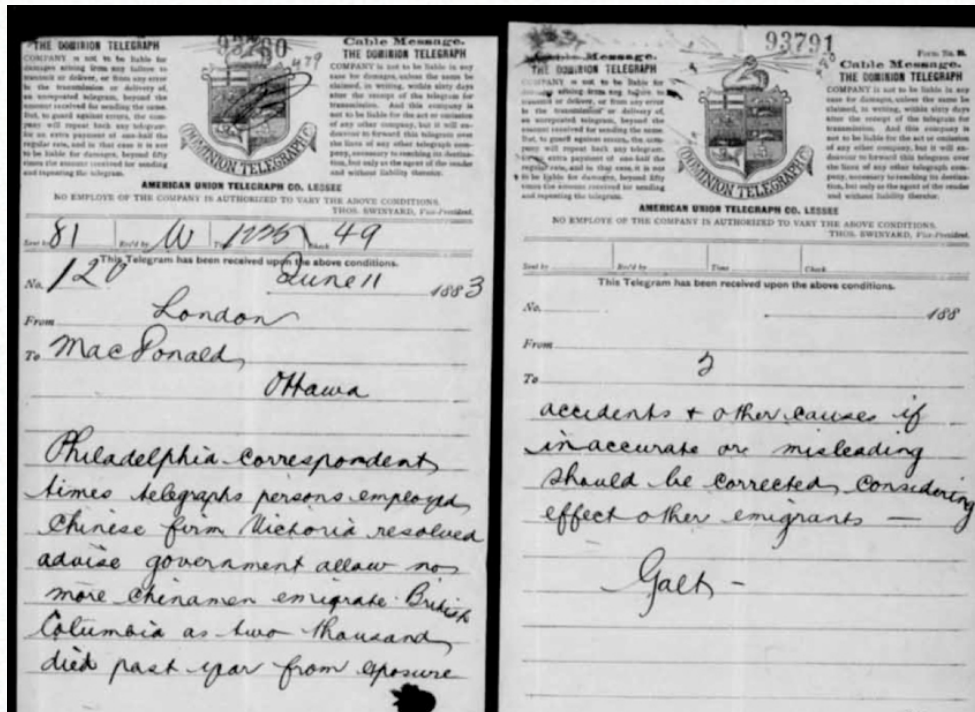 93760
479
THE DOMINION TELEGRAPH
COMPANY is not to be liable for
damages arising from any failure to
transmit or deliver, or from any error
in the transmission or delivery of,
an unrepeated telegram, beyond the
amount received for sending the same.
But, to guard against errors, the com-
pany will repeat back any telegram
for an extra payment of one-half the
regular rate, and in that case it is not
to be liable for damages, beyond fifty
times the amount received for sending
and repeating the telegram.
DOMINION TELEGRAPH
Cable Message.
THE DOMINION TELEGRAPH
COMPANY is not to be liable in any
case for damages, unless the same be
claimed, in writing, within sixty days
after the receipt of the telegram for
transmission. And this company is
not to be liable for the act or omission
of any other company, but it will en-
deavour to forward this telegram over
the lines of any other telegraph com-
pany, necessary to reaching its destina-
tion, but only as the agent of the sender
and without liability therefor.
AMERICAN UNION TELEGRAPH CO. LESSEE
NO EMPLOYE OF THE COMPANY IS AUTHORIZED TO VARY THE ABOVE CONDITIONS.
THOS. SWINYARD, Vice-President.
Sent by 81 Rec'd by W Check 49
This Telegram has been received upon the above conditions.
No. 120 June 11 1883
From London
To MacDonald
Ottawa
Philadelphia correspondent
times telegraphs persons employed
Chinese firm Victoria resolved
advise government allow no
more Chinamen emigrate British
Columbia as two thousand
died past year from exposure
93791
480
Form No.
Cable Message.
THE DOMINION TELEGRAPH
COMPANY is not to be liable for
damages arising from any failure to
transmit or deliver, or from any error
in the transmission or delivery of,
an unrepeated telegram, beyond the
amount received for sending the same.
But, to guard against errors, the com-
pany will repeat back any telegram
for an extra payment of one-half the
regular rate, and in that case, it is not
to be liable for damages, beyond fifty
times the amount received for sending
and repeating the telegram.
DOMINION TELEGRAPH
Cable Message.
THE DOMINION TELEGRAPH
COMPANY is not to be liable in any
case for damages, unless the same be
claimed, in writing, within sixty days
after the receipt of the telegram for
transmission. And this company is
not to be liable for the act or omission
of any other company, but it will en-
deavour to forward this telegram over
the lines of any other telegraph com-
pany, necessary to reaching its destina-
tion, but only as the agent of the sender
and without liability therefor.
AMERICAN UNION TELEGRAPH CO. LESSEE
NO EMPLOYE OF THE COMPANY IS AUTHORIZED TO VARY THE ABOVE CONDITIONS.
THOS. SWINYARD, Vice-President.
Sent by Rec'd by Time Check
This Telegram has been received upon the above conditions.
No. 188
From
2
To
accidents & other causes if
inaccurate or misleading
should be corrected considering
effect other emigrants —
Galt -